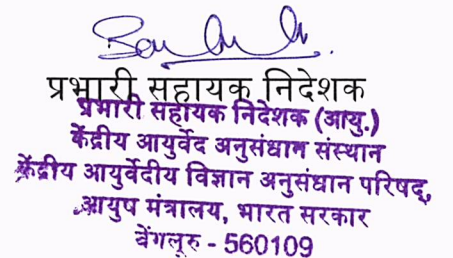 प्रभारी सहायक निदेशक
प्रभारी सहायक निदेशक (आयु.)
केंद्रीय आयुर्वेद अनुसंधान संस्थान
केंद्रीय आयुर्वेदीय विज्ञान अनुसंधान परिषद्,
आयुष मंत्रालय, भारत सरकार
बेंगलूरु - 560109